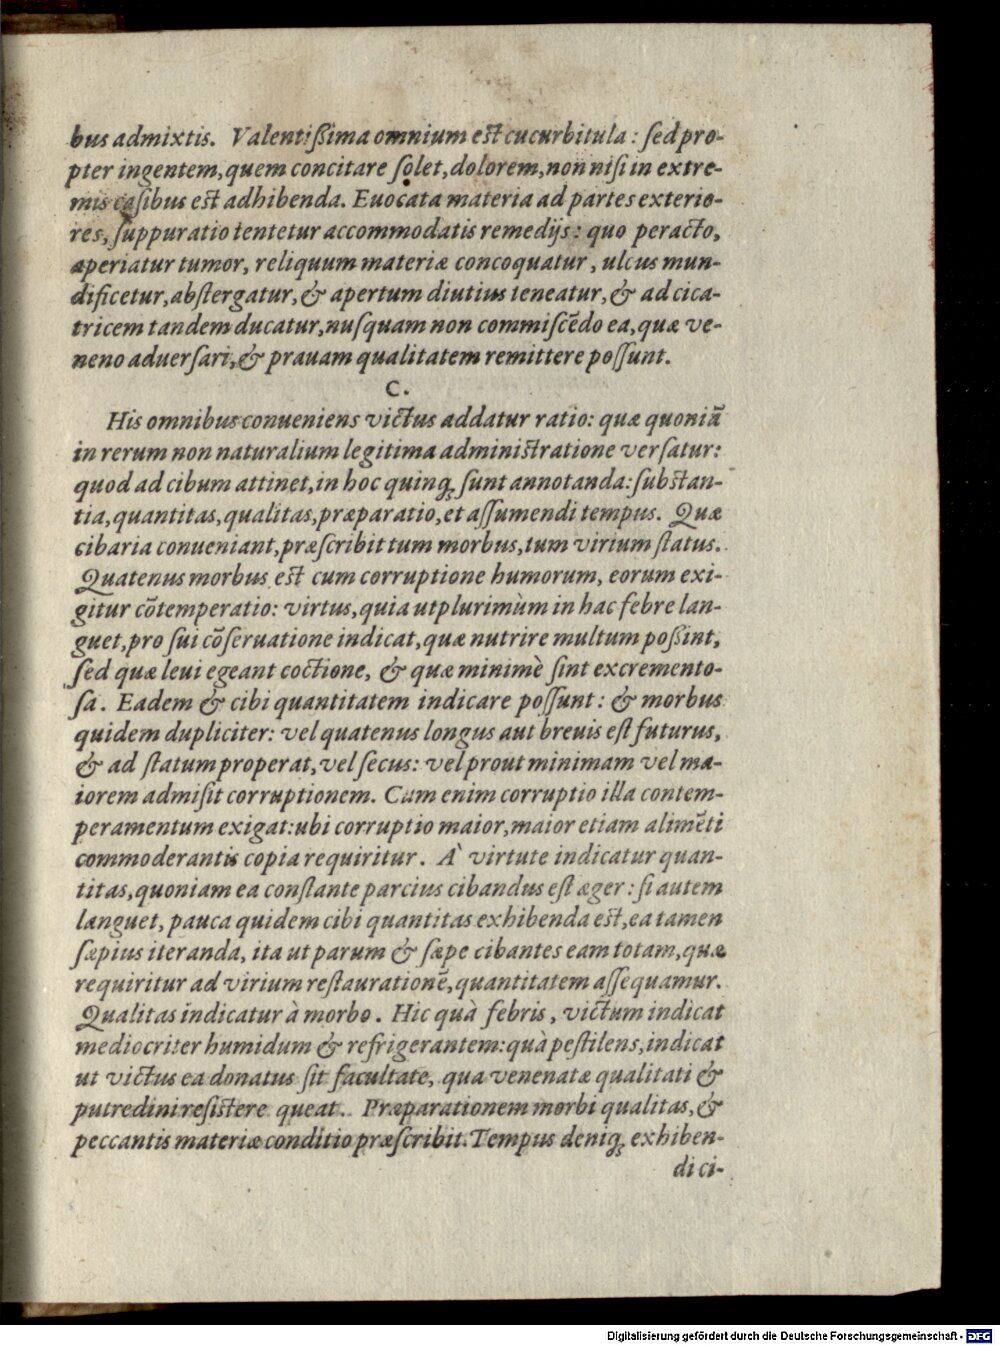 bus admixtis. Valentißima omnium est cucurbitula: sed pro-
pter ingentem, quem concitare solet, dolorem, non nisi in extre-
mis casibus est adhibenda. Euocata materia ad partes exterio-
res, suppuratio tentetur accommodatis remedijs: quo peracto,
aperiatur tumor, reliquum materiæ concoquatur, ulcus mun-
dificetur, abstergatur, & apertum diutius teneatur, & ad cica-
tricem tandem ducatur, nusquam non commiscēdo ea, quæ ve-
neno aduersari, & prauam qualitatem remittere possunt.
C.
His omnibus conueniens victus addatur ratio: quæ quoniā
in rerum non naturalium legitima administratione versatur:
quod ad cibum attinet, in hoc quinq; sunt annotanda: substan-
tia, quantitas, qualitas, præparatio, et assumendi tempus. Quæ
cibaria conueniant, præscribit tum morbus, tum virium status.
Quatenus morbus est cum corruptione humorum, eorum exi-
gitur cōtemperatio: virtus, quia utplurimùm in hac febre lan-
guet, pro sui cōseruatione indicat, quæ nutrire multum poßint,
sed quæ leui egeant coctione, & quæ minimè sint excremento-
sa. Eadem & cibi quantitatem indicare possunt: & morbus
quidem dupliciter: vel quatenus longus aut breuis est futurus,
& ad statum properat, vel secus: vel prout minimam vel ma-
iorem admisit corruptionem. Cum enim corruptio illa contem-
peramentum exigat: ubi corruptio maior, maior etiam alimēti
commoderantis copia requiritur. À virtute indicatur quan-
titas, quoniam ea constante parcius cibandus est æger: si autem
languet, pauca quidem cibi quantitas exhibenda est, ea tamen
sæpius iteranda, ita ut parum & sæpe cibantes eam totam, quæ
requiritur ad virium restaurationē, quantitatem assequamur.
Qualitas indicatur à morbo. Hic quà febris, victum indicat
mediocriter humidum & refrigerantem: quà pestilens, indicat
ut victus ea donatus sit facultate, qua venenatæ qualitati &
putredini resistere queat. Præparationem morbi qualitas, &
peccantis materiæ conditio præscribit. Tempus deniq; exhiben-
di ci-
Digitalisierung gefördert durch die Deutsche Forschungsgemeinschaft - DFG